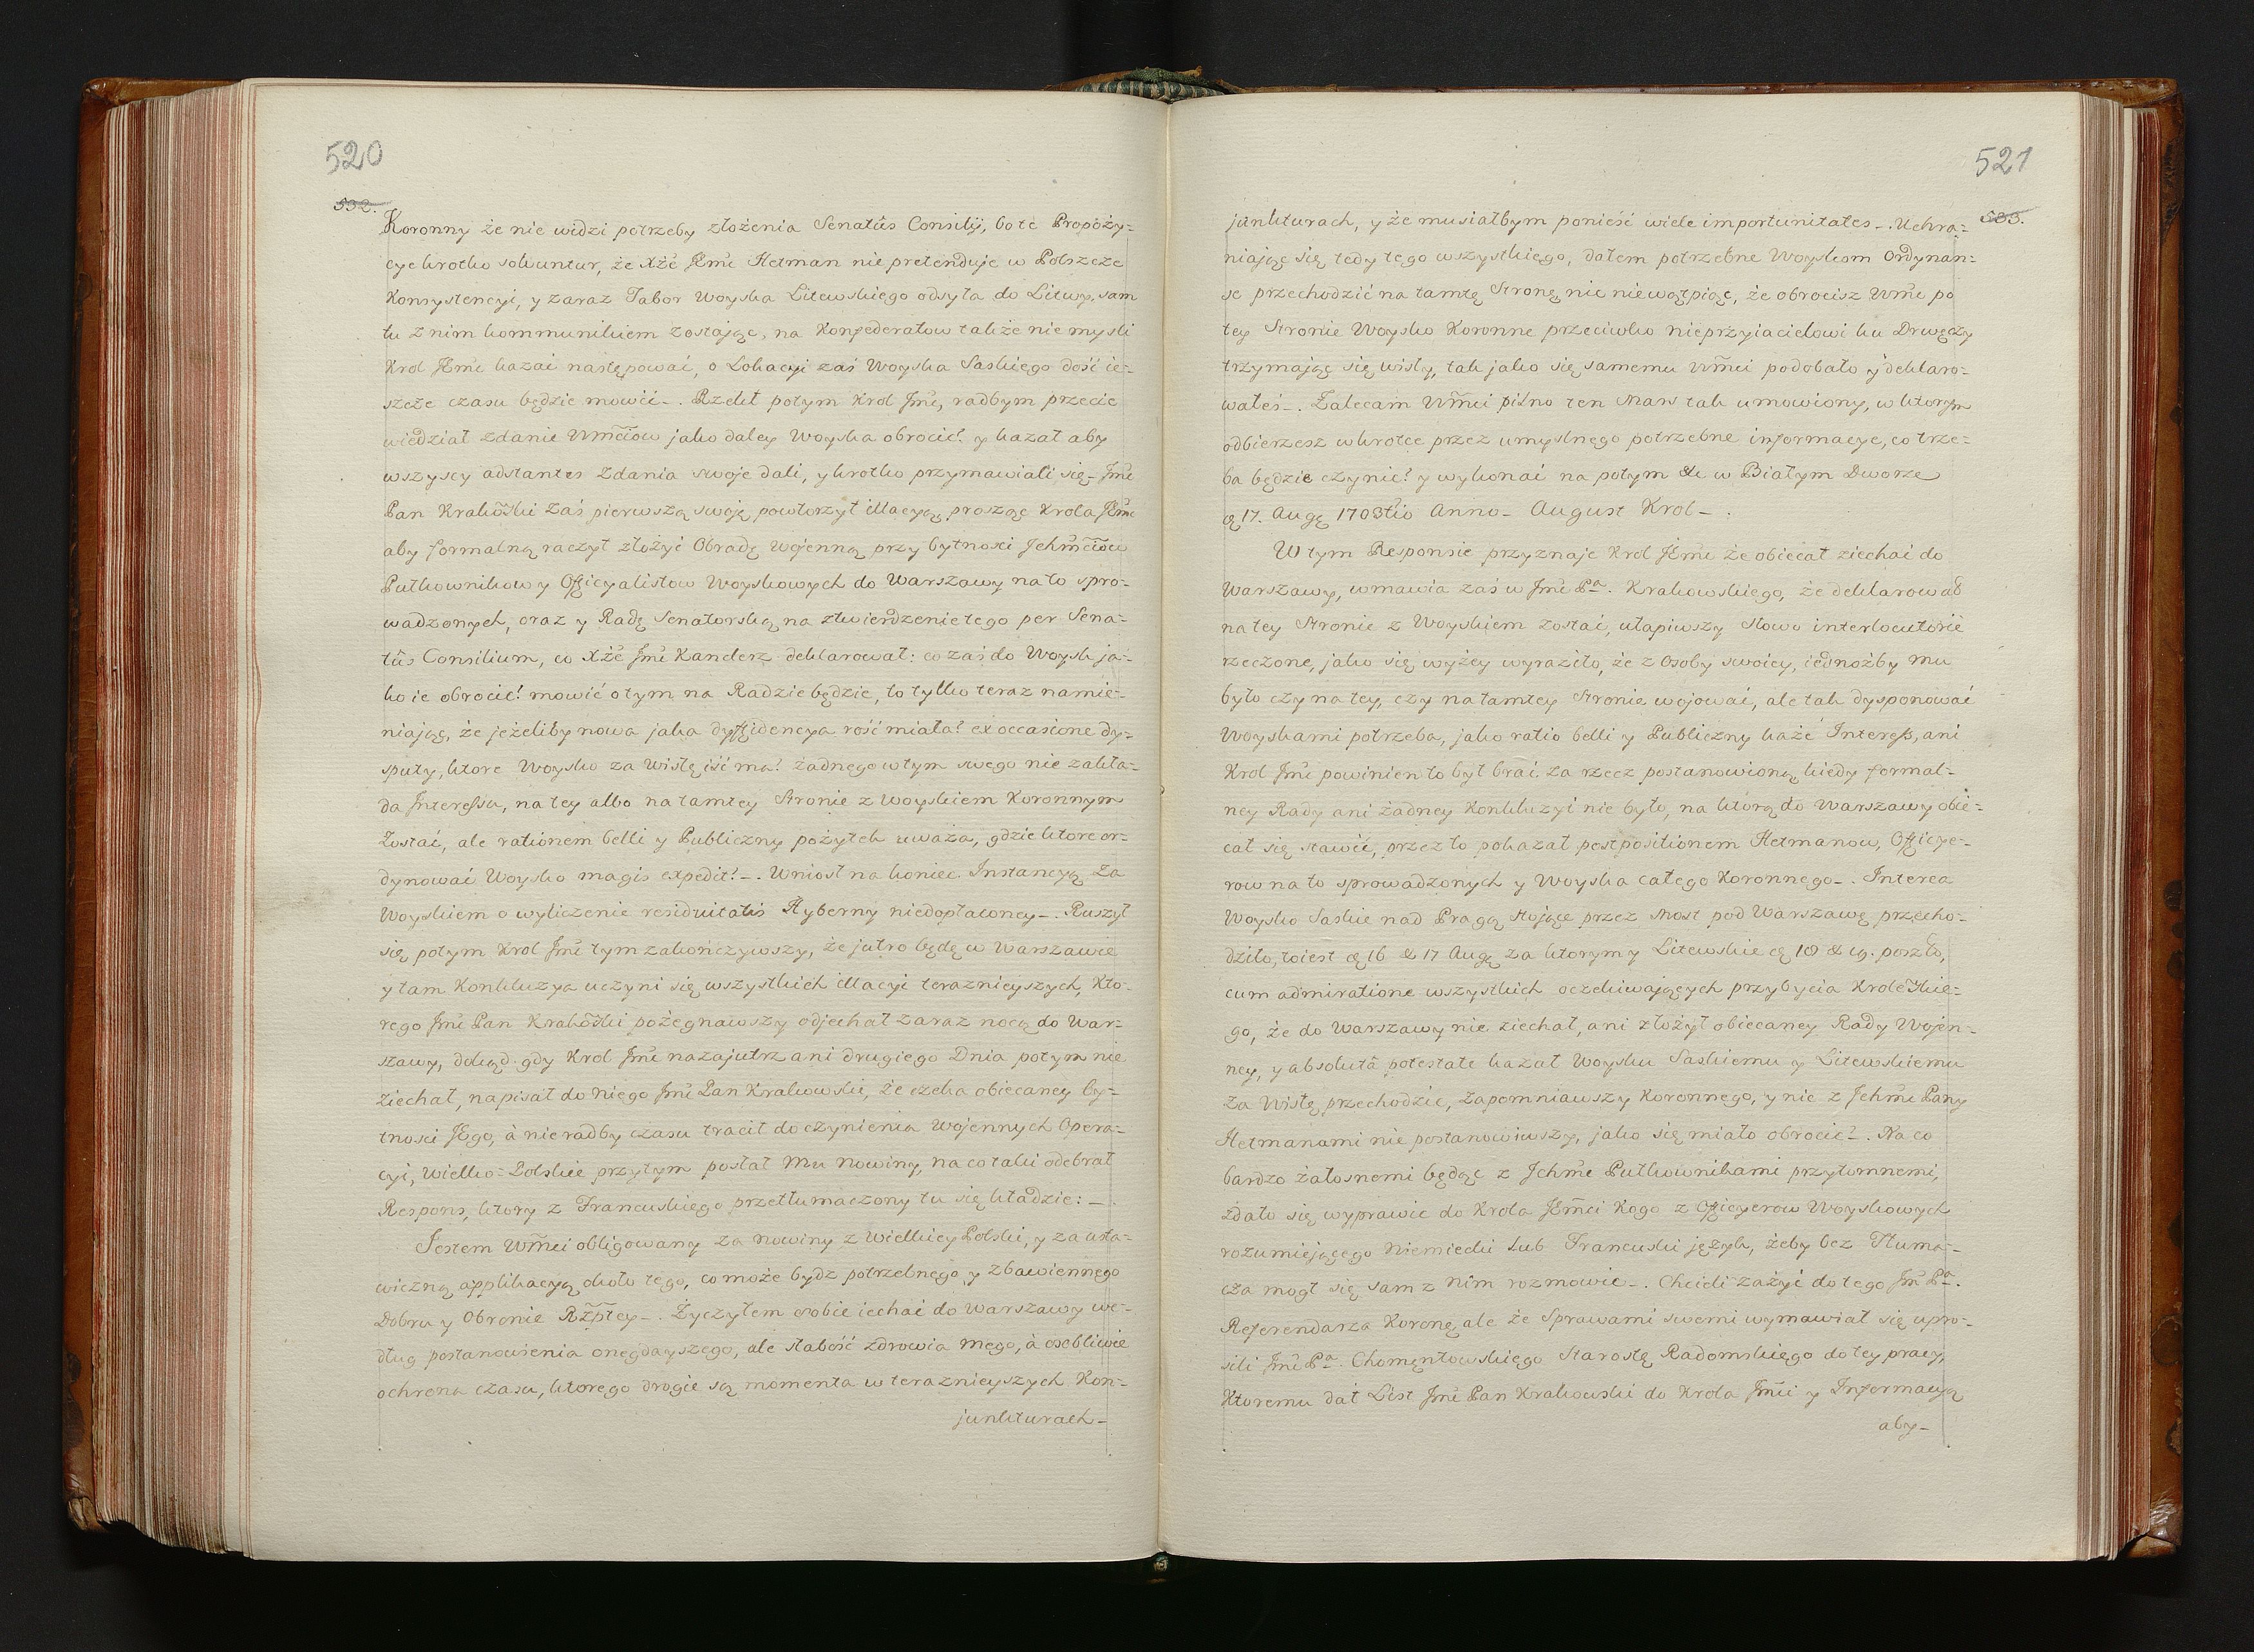 520
532.
Koronny że nie widzi potrzeby złożenia Senatûs Consilij, bo te Propozy=
cye krotko solvuntur, że Xże JEmć Hetman nie pretenduje w Polszcze
Konsystencyi, y zaraz Tabor Woyska Litewskiego odsyła do Litwy, sam
tu z nim kommunikiem zostając, na Konfederatow także nie myśli
Krol JEmć kazać następować, o Lokacyi zaś Woyska Saskiego dość ie=
szcze czasu będzie mowić -. Rzekł potym Krol Jmć, radbym przecie
wiedział zdanie Wmciow jako daley Woyska obrocić? y kazał aby
wszyscy adstantes zdania swoje dali, y krotko przymawiali się - Jmć
Pan Krakoski zaś pierwszą swoję powtorzył illacyą, prosząc Krola JEmci
aby formalną raczył złożyć Obradę wojenną przy bytnosci Jchmciow
Pułkownikow y Officyalistow Woyskowych do Warszawy na to spro=
wadzonych, oraz y Radę Senatorską na ztwierdzenie tego per Sena=
tûs Consilium, co Xże Jmć Kanclerz deklarował: co zaś do Woysk ja=
ko ie obrocić? mowić o tym na Radzie będzie, to tylko teraz namie=
niając, że jeżeliby nowa jaka dyffidencya rość miała? ex occasione dy=
sputy, ktore Woysko za Wisłę iść ma? żadnego w tym swego nie zakła=
da Interessu, na tey albo na tamtey Stronie z Woyskiem Koronnym
Zostać, ale rationem belli y Publiczny pożytek uważa, gdzie ktore or=
dynować Woysko magis expedit? -. Wniosł na koniec Instancyą Za
Woyskiem o wyliczenie residuitatis Hyberny niedopłaconey -. Ruszył
się potym Krol Jmć tym zakończywszy, że jutro będę w Warszawie
y tam Konkluzya uczyni się wszystkich illacyi teraznieyszych, Kto=
rego Jmć Pan Krakoski pożegnawszy odjechał zaraz nocą do War=
szawy, dokąd gdy Krol Jmć nazajutrz ani drugiego Dnia potym nie
ziechał, napisał do niego Jmć Pan Krakowski, że czeka obiecaney by=
tnosci JEgo, à nie radby czasu tracił do czynienia Wojennych Opera=
cyi, Wielko=Polskie przytym posłał Mu Nowiny, na co taki odebrał
Respons, ktory z Francuskiego przetłumaczony tu się kładzie: -
Jestem Wmci obligowany za nowiny z Wielkiey Polski, y za usta=
wiczną applikacyą około tego, co może bydz potrzebnego y zbawiennego
Dobru y Obronie Rzptey -. Życzyłem sobie iechać do Warszawy we=
dług postanowienia onegdayszego, ale słabość zdrowia mego, à osobliwie
ochrona czasu, ktorego drogie są momenta w teraznieyszych Kon=
junkturach -
521
533.
junkturach, y że musiałbym ponieść wiele importunitates -. Uchra=
niając się tedy tego wszystkiego, dałem potrzebne Woyskom Ordynan=
se przechodzić na tamtę Stronę, nic niewątpiąc, że obrocisz Wmć po
tey Stronie Woysko Koronne przeciwko nieprzyiacielowi ku Drwęczy
trzymając się wisły, tak jako się samemu Wmci podobało y deklaro=
wałeś -. Zalecam Wmci pilno ten Mars tak umowiony, w ktorym
odbierzesz wkrotce przez umyslnego potrzebne informacye, co trze=
ba będzie czynić? y wykonać na potym &c w Białym Dworze
d 17. Aug 1703tio Anno - August Krol -.
W tym Responsie przyznaje Krol JEmć że obiecał ziechać do
Warszawy, wmawia zaś w Jmć Pa. Krakowskiego, że deklarował
na tey Stronie z Woyskiem zostać, ułapiwszy słowo interlocutoriè
rzeczone, jako się wyżey wyraziło, że z Osoby swoiey, iednożby mu
było czy na tey, czy na tamtey Stronie wojować, ale tak dysponować
Woyskami potrzeba, jako ratio belli y Publiczny każe Interess, ani
Krol Jmć powinien to był brać za rzecz postanowioną kiedy formal=
ney Rady ani żadney Konkluzyi nie było, na ktorą do Warszawy obie=
cał się stawić, przez to pokazał postpositionem Hetmanow, Officye=
row na to sprowadzonych y Woyska całego Koronnego -. Interea
Woysko Saskie nad Pragą stojące przez Most pod Warszawę przecho=
dziło, to iest d 16 & 17 Aug za ktorym y Litewskie d 18 & 19. poszło,
cum admiratione wszystkich oczekiwających przybycia Krolewskie=
go, że do Warszawy nie ziechał, ani złożył obiecaney Rady Wojen=
ney, y absolutâ potestate kazał Woysku Saskiemu y Litewskiemu
za Wisłę przechodzić, Zapomniawszy Koronnego, y nic z Jchmć Pany
Hetmanami nie postanowiwszy, jako się miało obrocić? -. Na co
bardzo żałosnemi będąc z Jchmć Pułkownikami przytomnemi,
zdało się wyprawić do Krola JEmci Kogo z Officyerow Woyskowych
rozumiejącego Niemiecki lub Francuski język, żeby bez Tłuma=
cza mogł się sam z Nim rozmowić -. Chcieli zażyć do tego Jmć Pa.
Referendarza Koronę, ale że Sprawami swemi wymawiał się upro=
sili Jmć Pa. Chomętowskiego Starostę Radomskiego do tey pracy,
Ktoremu dał List Jmć Pan Krakowski do Krola Jmci y Informacyą
aby -